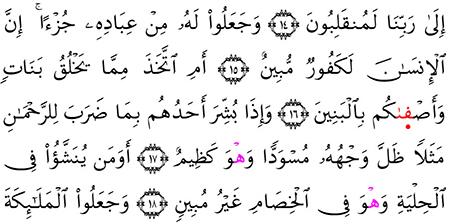 إِلَىٰ رَبِّنَا لَمُنقَلِبُونَ ﴿١٤﴾ وَجَعَلُوا۟ لَهُۥ مِنْ عِبَادِهِۦ جُزْءًا ۚ إِنَّ
ٱلْإِنسَـٰنَ لَكَفُورٌ مُّبِينٌ ﴿١٥﴾ أَمِ ٱتَّخَذَ مِمَّا يَخْلُقُ بَنَاتٍ
وَأَصْفَىٰكُم بِٱلْبَنِينَ ﴿١٦﴾ وَإِذَا بُشِّرَ أَحَدُهُم بِمَا ضَرَبَ لِلرَّحْمَـٰنِ
مَثَلًا ظَلَّ وَجْهُهُۥ مُسْوَدًّا وَهْوَ كَظِيمٌ ﴿١٧﴾ أَوَمَن يَنشَؤُا۟ فِى
ٱلْحِلْيَةِ وَهْوَ فِى ٱلْخِصَامِ غَيْرُ مُبِينٍ ﴿١٨﴾ وَجَعَلُوا۟ ٱلْمَلَـٰٓئِكَةَ